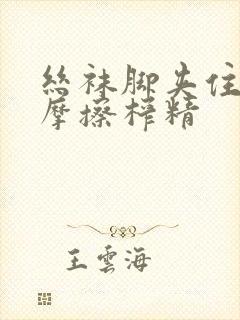 丝袜脚夹住
摩擦榨精
王雲海